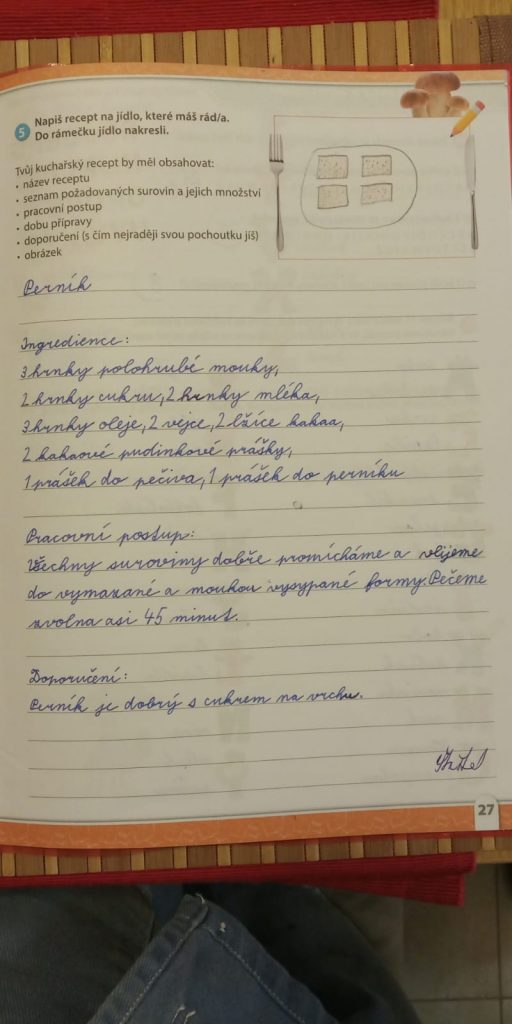 5 Napiš recept na jídlo, které máš rád/a.
Do rámečku jídlo nakresli.
Tvůj kuchařský recept by měl obsahovat:
• název receptu
• seznam požadovaných surovin a jejich množství
• pracovní postup
• dobu přípravy
• doporučení (s čím nejraději svou pochoutku jíš)
• obrázek
Perník
Ingredience:
3 hrnky polohrubé mouky,
2 hrnky cukru, 2 hrnky mléka,
3 hrnky oleje, 2 vejce, 2 lžíce kakaa,
2 kakaové pudinkové prášky,
1 prášek do pečiva, 1 prášek do perníku
Pracovní postup:
Všechny suroviny dobře promícháme a vlijeme
do vymazané a moukou vysypané formy. Pečeme
zvolna asi 45 minut.
Doporučení:
Perník je dobrý s cukrem na vrchu.
27